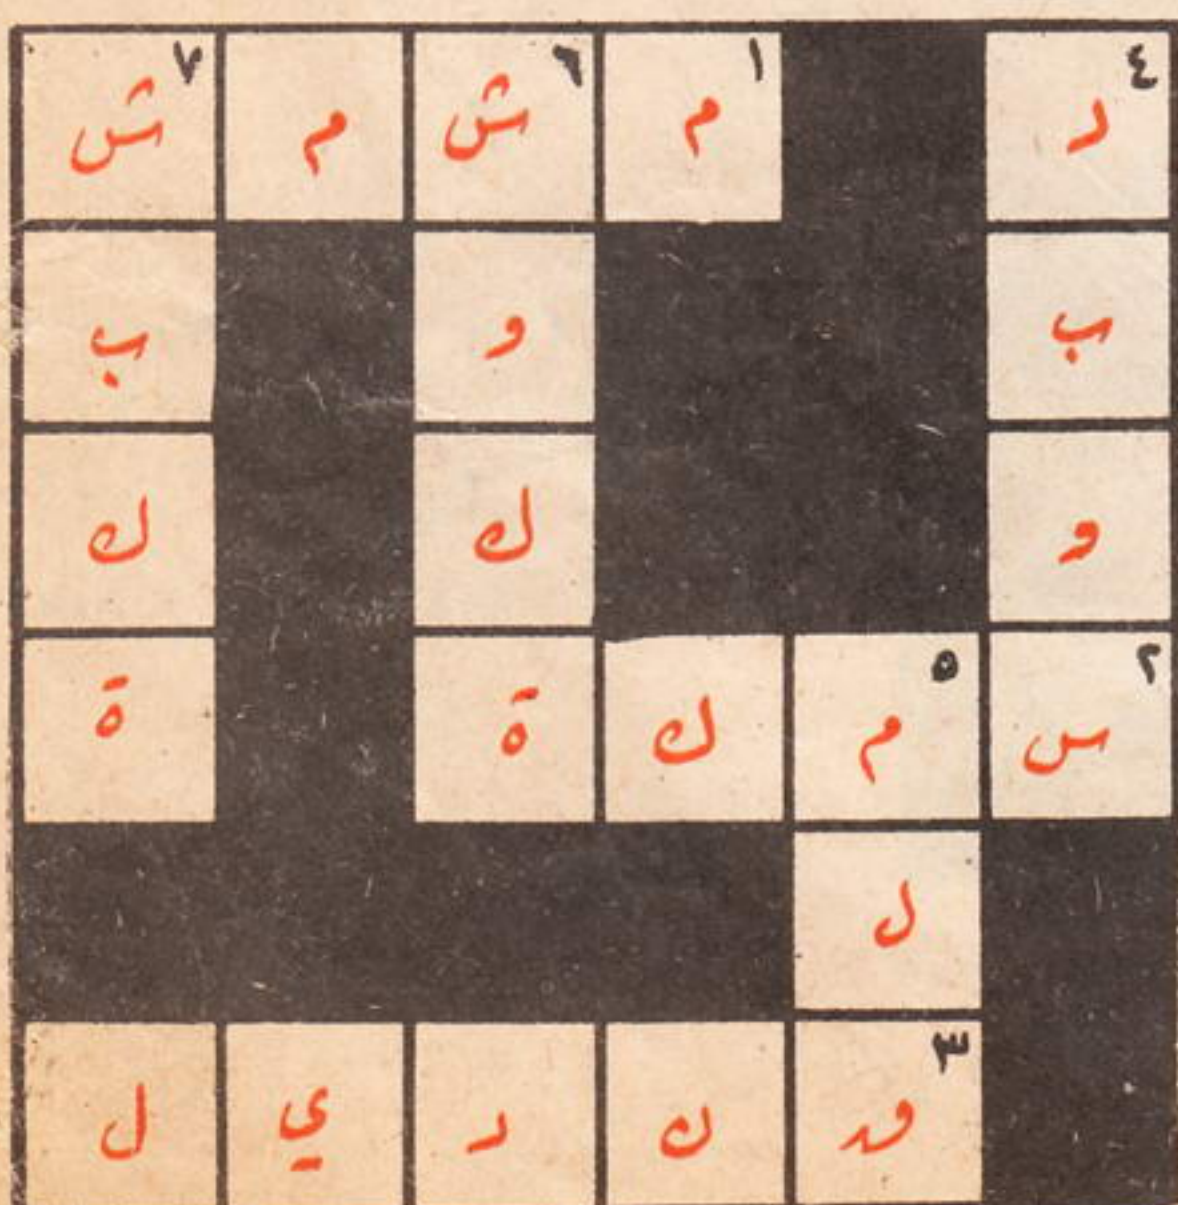 ٤ د ١ م ٦ ش م ٧ ش
ب و ب
و ك ك
٢ س ٥ م ك ة ة
ل
٣ ق ن د ي ل